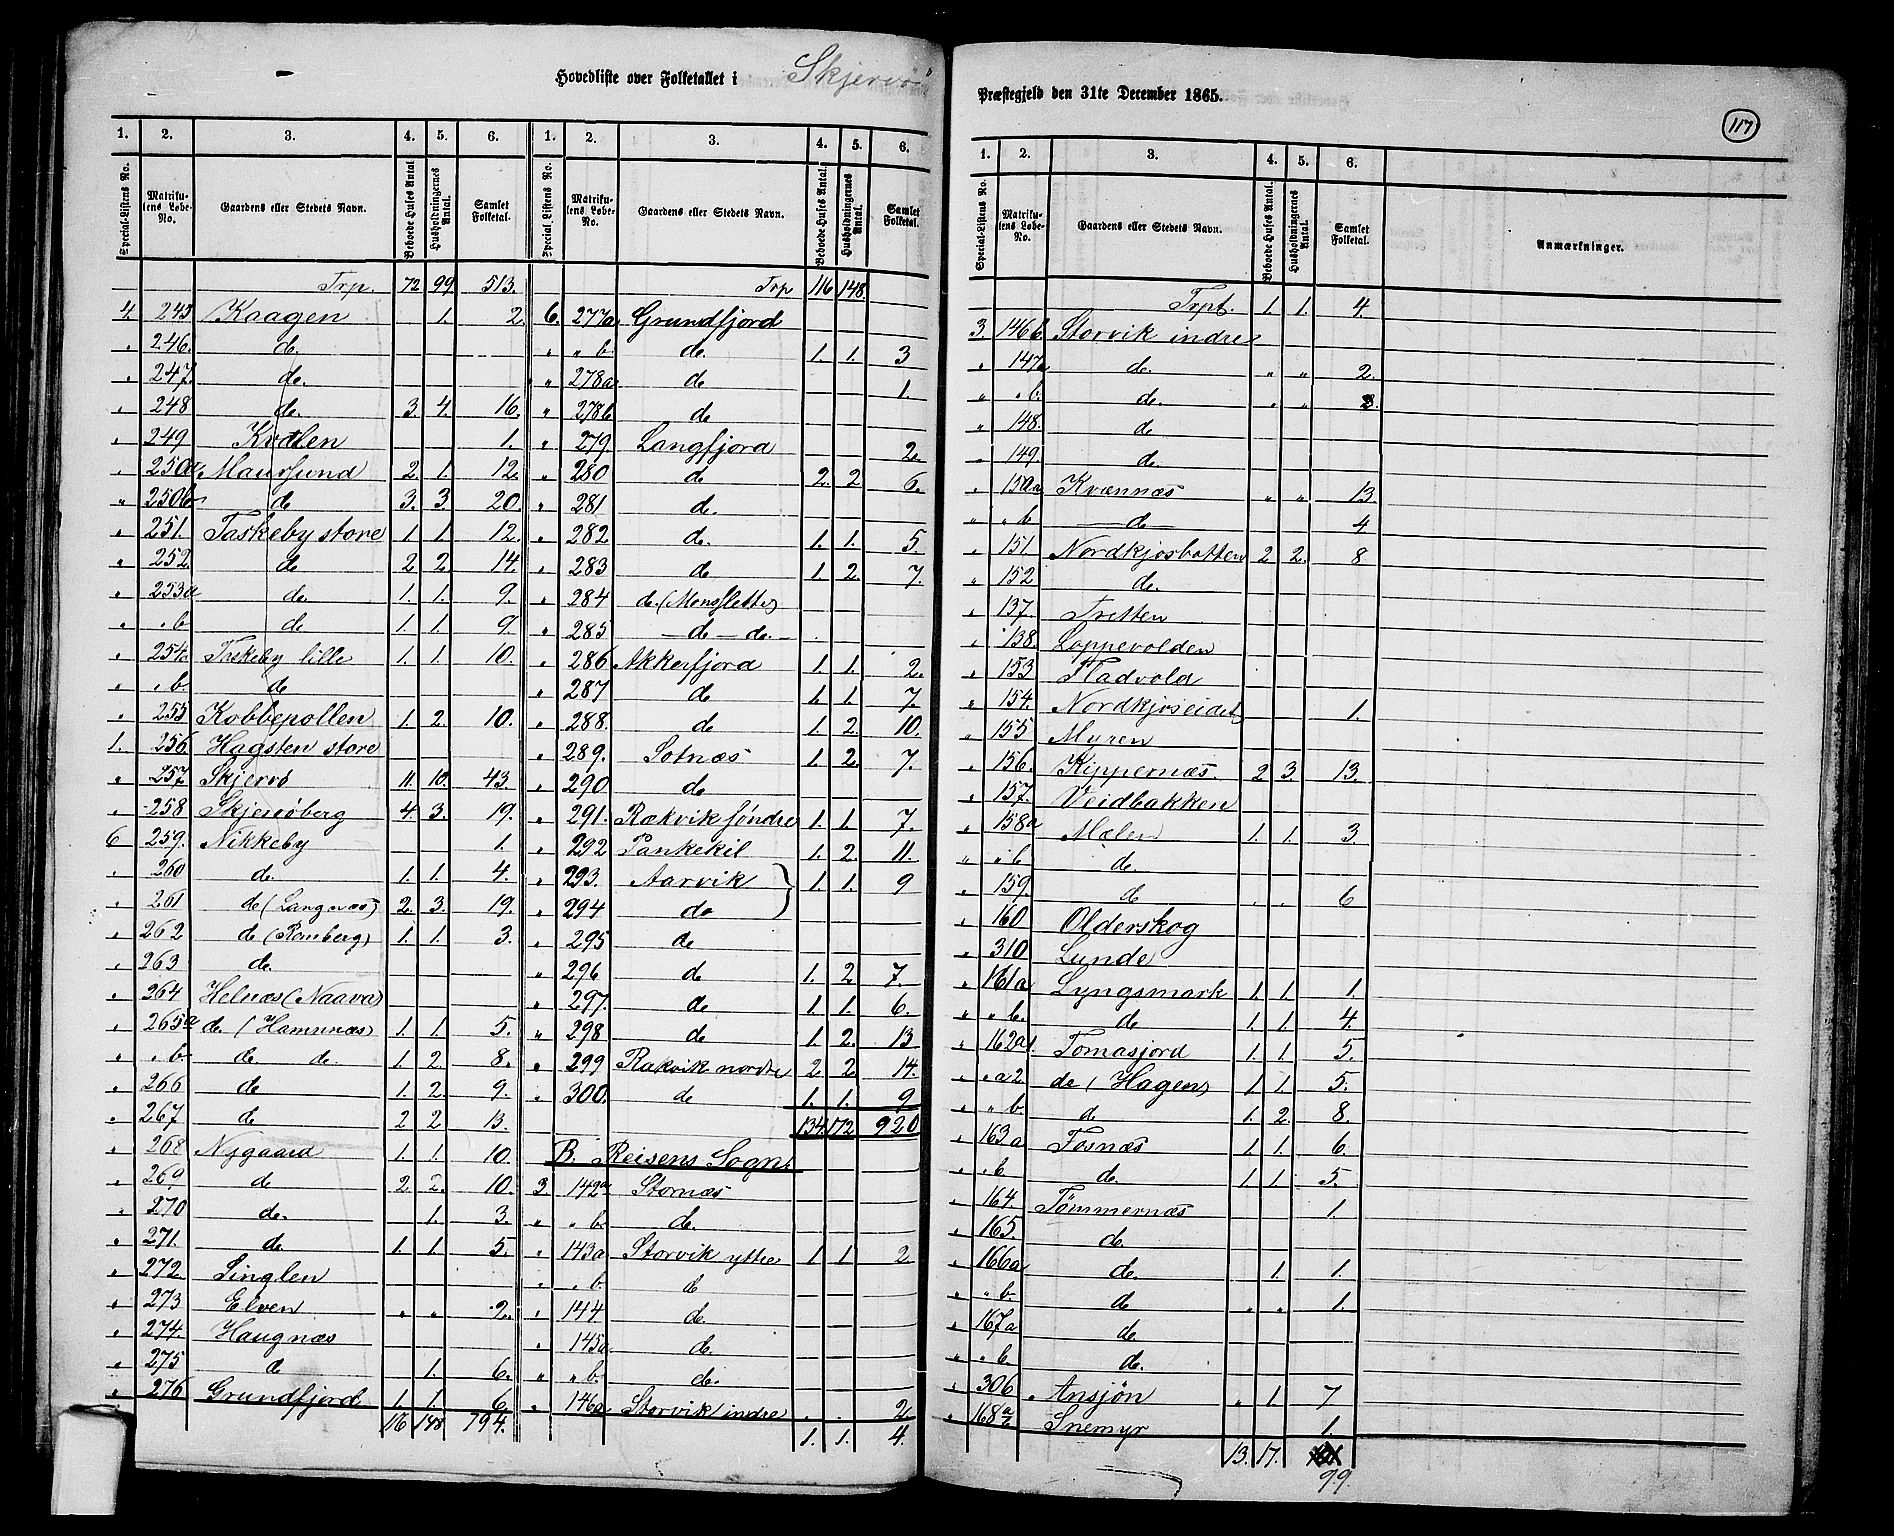 Hovedliste over Folketallet i Skjervö
1. 2. 3. 4. 5. 6. 1. 2. 3. 4. 5. 6.
Special-Listens No. Matrikulens Løbe-No. Gaardens eller Stedets Navn. Beboede Huses Antal Husholdningernes Antal. Samlet Folketal. Special-Listens No. Matrikulens Løbe-No. Gaardens eller Stedets Navn. Beboede Huses Antal. Husholdningernes Antal. Samlet Folketal.
Trp. 72 99 513.
4. 245 Kaagen 1. 2.
" 246. de.
" 247. de.
" 248 de. 3. 4. 16.
" 249 Kvalen 1.
" 250a Maursund 2. 1. 12.
" 250b de 3. 3. 20.
" 251. Taskeby store 1. 1. 12.
" 252 de 2 2. 14.
" 253a de. 1. 1. 9.
" " b de 1. 1. 9.
" 254a Taskeby lille 1. 1. 10.
" " b. de
" 255 Kobbepollen 1. 2. 10.
1. 256. Hagsten store
" 257. Skjervö 11. 10. 43.
" 258 Skjervöberg 4. 3. 19.
6 259. Nikkeby 1.
" 260 de. 1. 1. 4.
" 261 de (Langnæs) 2. 3. 19.
" 262 de (Ramberg) 1. 1. 3.
" 263 de.
" 264 Helnæs (Naava)
" 265a de. (Hamnnæs) 1. 1. 5.
" " b de de. 1. 2. 8.
" 266 de 1. 2. 9.
" 267 de 2 2 13.
" 268 Nygaard 1. 1. 10.
" 269 de 2. 2. 10.
" 270 de. 1. 3.
" 271. de 1. 1. 5.
" 272. Singlen
" 273 Elven " " 2.
" 274. Haugnæs
" 275 de 1. 6.
" 276 Grundfjord 1. 1. 6.
116 148 794.
Trp 116 148.
6. 277a Grundfjord
" " b. de. 1. 1. 3
" 278a de 1.
" 278b de
" 279. Langfjord 2.
" 280 de 2. 2 6.
" 281 de.
" 282 de. 1. 1. 5.
" 283 de 1. 2. 7.
" 284 de. (Monsslette)
" 285 de de.
" 286 Akkerfjord 1. 1. 2.
" 287 de 1. 1. 7.
" 288. de 1. 2. 10.
" 289. Sotnæs 1. 2. 7.
" 290 de
" 291. Rækvik søndre 1. 1. 7.
" 292 Pankekil 1. 2. 11.
" 293. Aarvik 1. 1. 9
" 294 de
" 295 de
" 296 de 1. 2 7.
" 297. de 1. 1. 6.
" 298 de 1. 2. 13
" 299 Rakvik nordre 2 2 14.
" 300. de 1. 1. 9
134. 172 920
B. Reisens Sogn.
3. 142a Stornæs
" " b. de.
" 143a Storvik yttre 1 1 2
" " b. de
" 144 de.
" 145a de.
" " b. de.
" 146a Storvik indre " " 2
1. 1. 4.
Præstegjeld den 31te December 1865.
117
1. 2. 3. 4. 5. 6.
Special-Listens No. Matrikulens Løbe-No. Gaardens eller Stedets Navn. Beboede Huses Antal. Husholdningernes Antal. Samlet Folketal. Anmærkninger.
Trpt. 1. 1. 4.
3. 146b. Storvik indre
" 147a de. " " 2.
" " b. de. " "
" 148. de
" 149. de.
" 150a Kvænnæs " " 13.
" " b de 4
" 151. Nordkjosbotten 2 2. 8
" 152 de.
" 137. Tretten
" 138. Loppevolden
" 153 Fladvold
" 154. Nordkjoseidet 1.
" 155 Myren
" 156. Kippernæs. 2 3. 13.
" 157. Veidbakken
" 158a Mælen 1. 1. 3.
" " b de.
" 159. de 6
" 160 Olderskog
" 310 Lunde
" 161a Lyngsmark 1. 1. 1.
" " b. de 1. 1. 4.
" 162a1. Tomasjord 1. 1. 5.
" " a2 de (Hagen) 1. 1. 5.
" " b. de 1. 2. 8.
" 163a Fosnæs 1. 1. 6.
" " b. de. 1. 1. 5.
" 164. Tømmernæs 1.
" 165. de.
" 166a de. 1. 1.
" " b. de " " 1.
" 167a de
" " b. de.
" 306 Ansjön " 1. 7
" 168a/b Snemyr 1.
13. 17.
99.